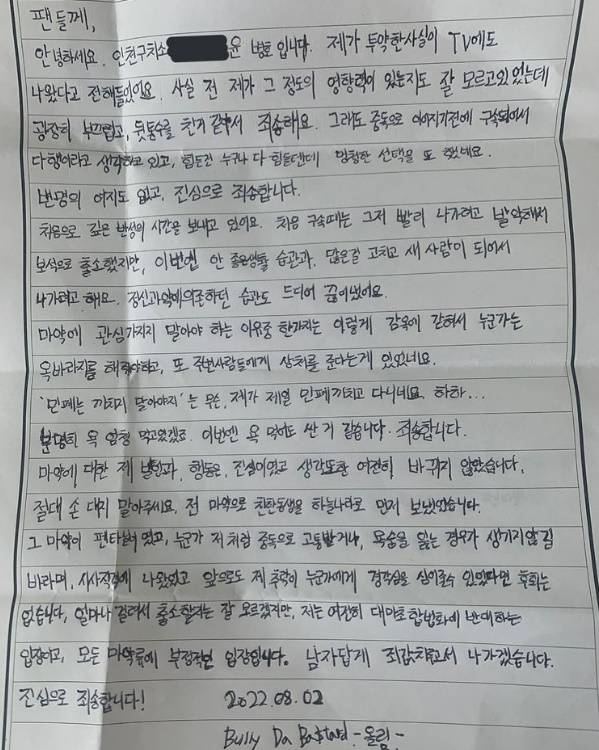 팬들께,
안녕하세요. 인천구치소 윤병호 입니다. 제가 투약한사실이 TV에도
나왔다고 전해들었어요. 사실 전 제가 그 정도의 영향력이 있는지도 잘 모르고있었는데
굉장히 부끄럽고, 뒷통수를 친거 같아서 죄송해요. 그래도 중독으로 이어지기전에 구속되어서
다행이라고 생각하고 있고, 힘든건 누구나 다 힘들텐데 멍청한 선택을 또 했네요.
변명의 여지도 없고, 진심으로 죄송합니다.
처음으로 깊은 반성의 시간을 보내고 있어요. 처음 구속때는 그저 빨리 나가려고 발악해서
보석으로 출소했지만, 이번엔 안 좋은생활 습관과, 많은걸 고치고 새 사람이 되어서
나가려고 해요. 정신과약에의존하던 습관도 드디어 끊어냈어요.
마약에 관심가지지 말아야 하는 이유중 한가지는 이렇게 감옥에 갇혀서 누군가는
옥바라지를 해줘야하고, 또 주변사람들에게 상처를 준다는게 있었네요.
'민폐는 끼치지 말아야지' 는 무슨, 제가 제일 민폐끼치고 다니네요. 하하...
분명히 욕 엄청 먹고있겠죠. 이번엔 욕 먹어도 싼 거 같습니다. 죄송합니다.
마약에 대한 제 발언과, 행동은, 진심이었고 생각또한 여전히 바뀌지 않았습니다.
절대 손 대지 말아주세요. 전 마약으로 친한동생을 하늘나라로 먼저 보냈었습니다.
그 마약이 펜타닐이었고, 누군가 저처럼 중독으로 고통받거나, 목숨을 잃는 경우가 생기지않길
바라며, 시사직격에 나왔었고 앞으로도 제 추락이 누군가에게 경각심을 심어줄수 있었다면 후회는
없습니다. 얼마나 걸려서 출소할지는 잘 모르겠지만, 저는 여전히 대마초합법화에 반대하는
입장이고, 모든 마약류에 부정적인 입장입니다. 남자답게 죄값치르고서 나가겠습니다.
진심으로 죄송합니다! 2022.08.02
Bully Da Ba$tard -올림-